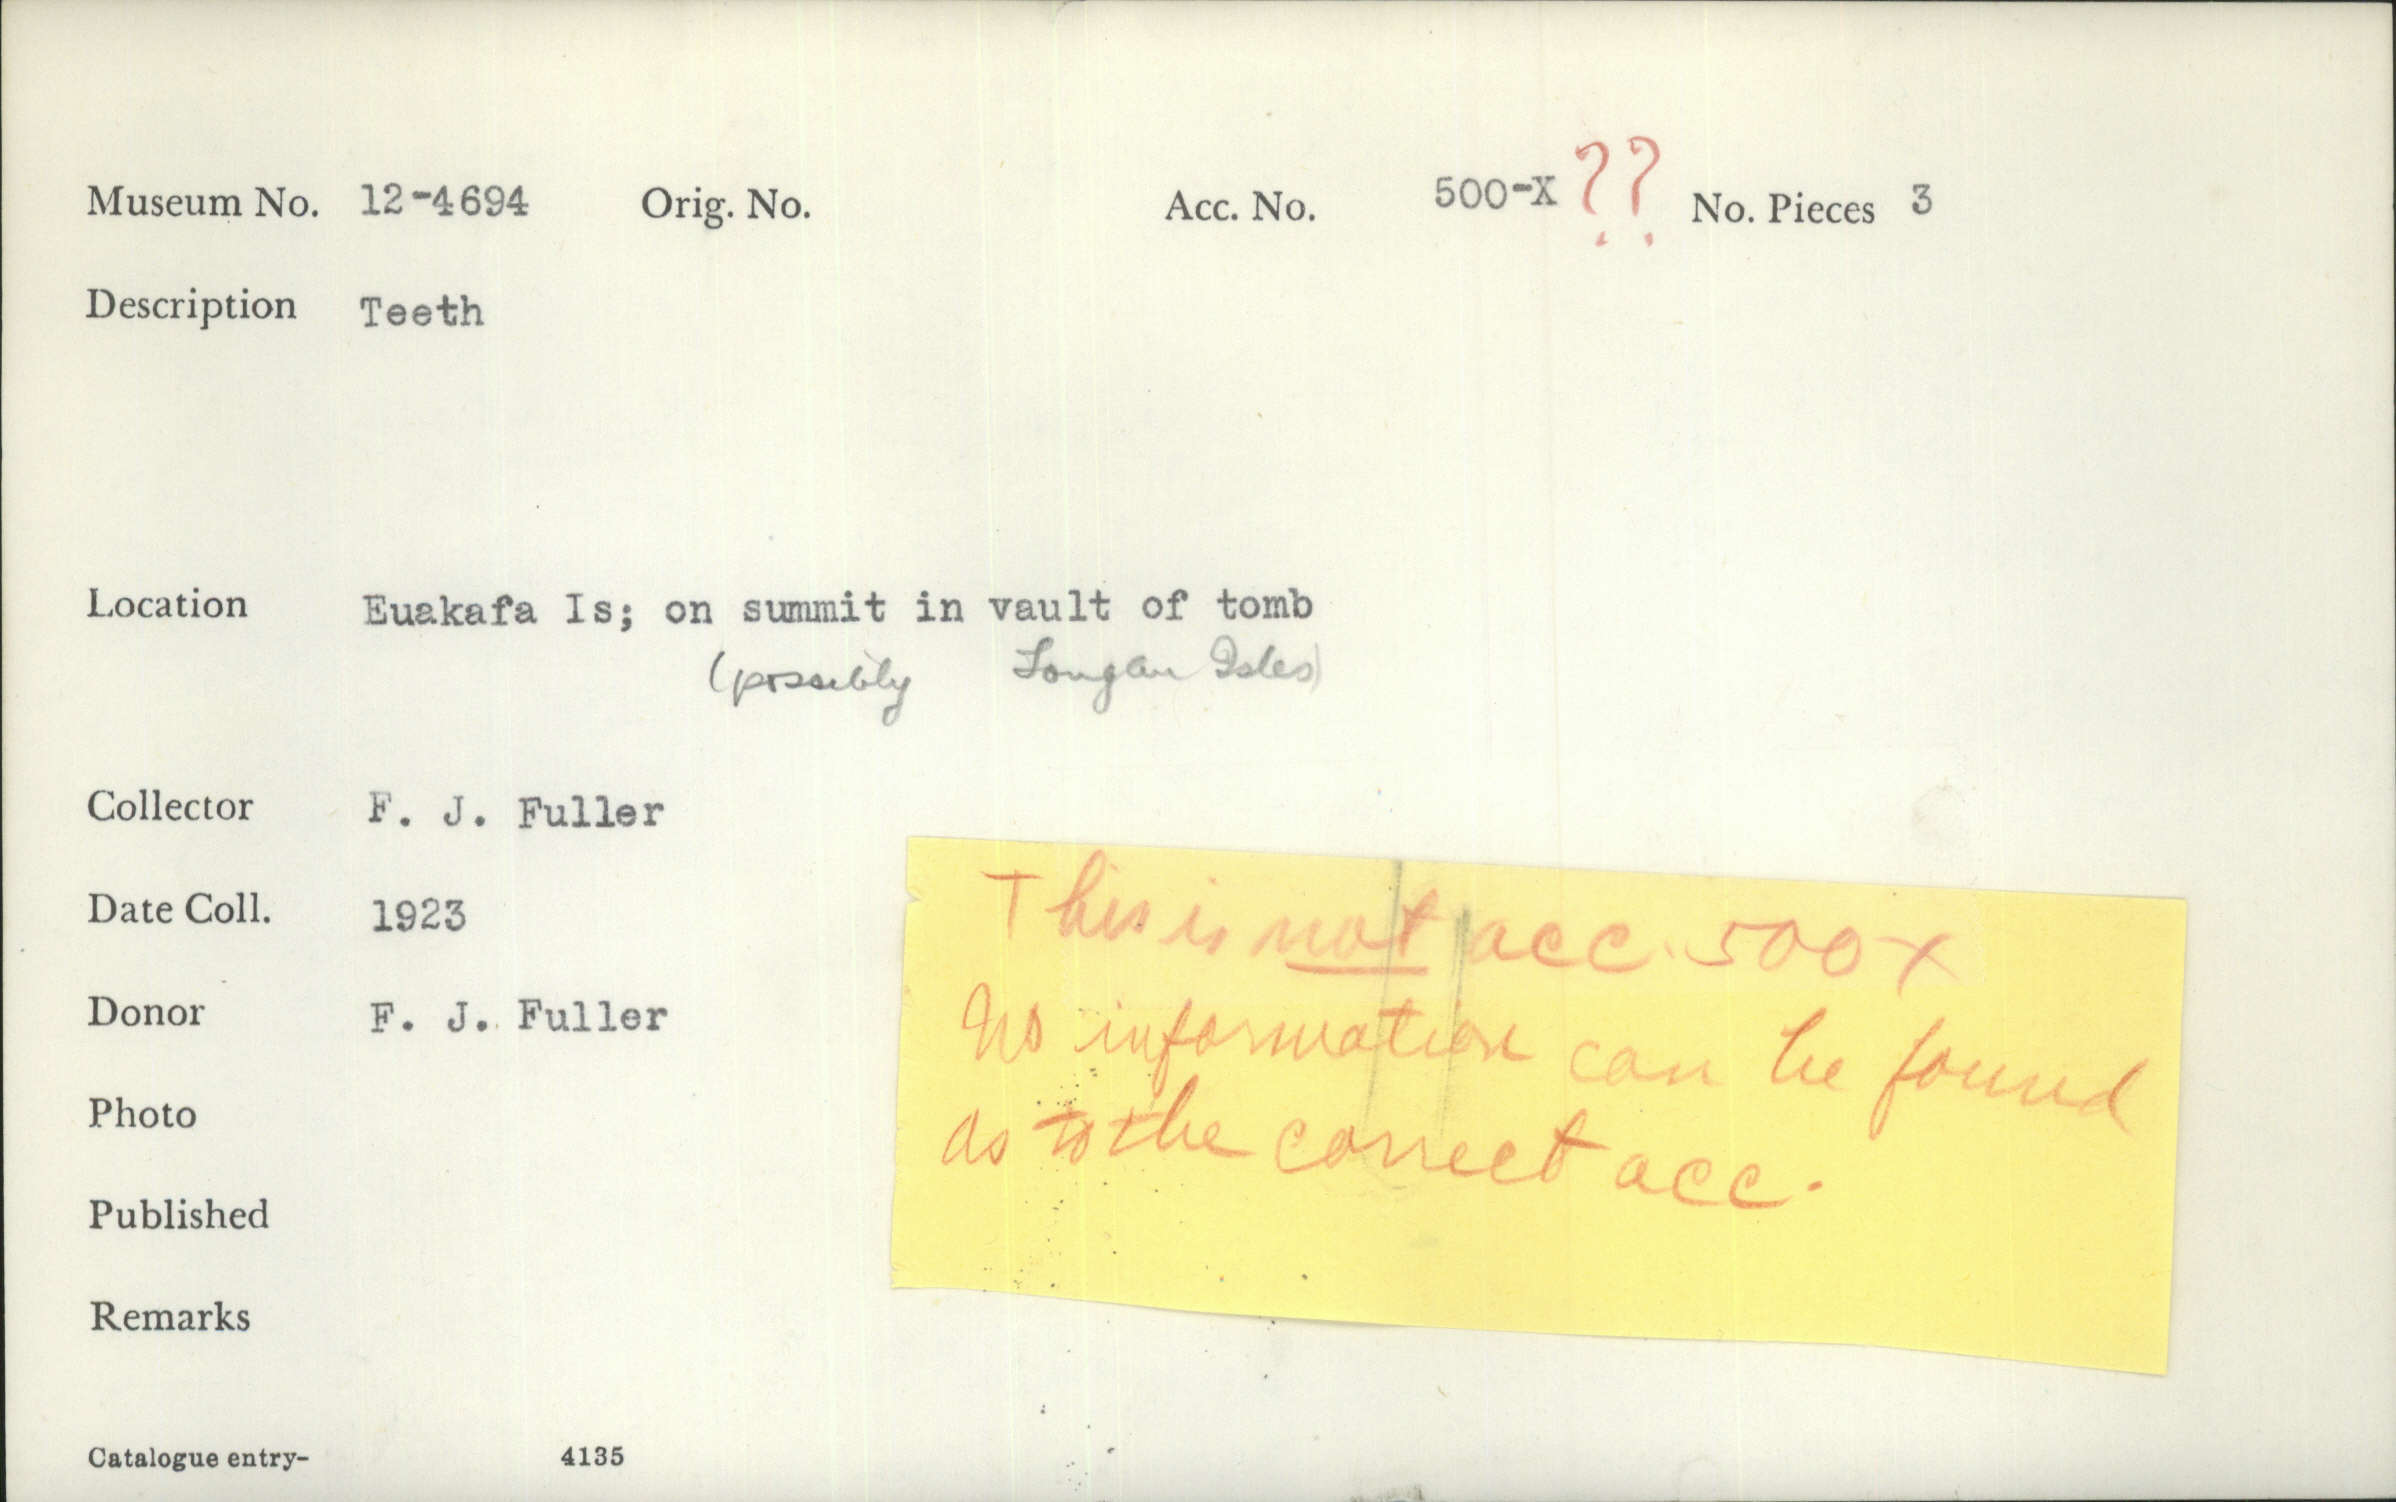 Museum No. 12-4694 Orig. No. Acc. No. 500-X ?? No. Pieces 3
Description Teeth
Location Euakafa Is; on summit in vault of tomb
(possibly Tongan Isles)
Collector F. J. Fuller
Date Coll. 1923
Donor F. J. Fuller
Photo
Published
Remarks
This is not acc. 500X
No information can be found
as to the correct acc.
Catalogue entry- 4135